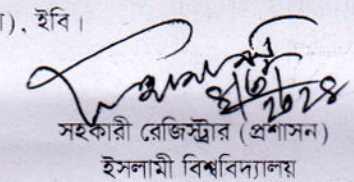 ), ইবি।
৪/৩/২০২৪
সহকারী রেজিস্ট্রার (প্রশাসন)
ইসলামী বিশ্ববিদ্যালয়